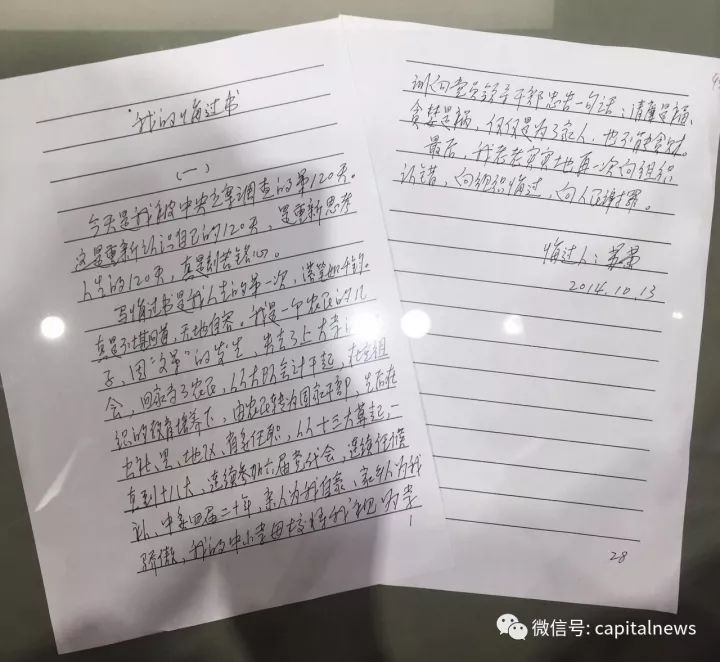 我的悔过书
(一)
今天是我被中央立案调查的第120天。
这是重新认识自己的120天，是重新思考
人生的120天，真是刻骨铭心。
写悔过书是我人生的第一次，落笔如千钧。
真是不堪回首，无地自容。我是一个农民的儿
子，因"文革"的发生，失去了上大学的机
会，回家当了农民，从大队会计干起，在党组
织的教育培养下，由农民转为国家干部，先后在
公社、县、地区、省委任职，从十三大算起，一
直到十八大，连续参加六届党代会，连续任候
补、中委四届二十年，亲人为我自豪，家乡人为我
骄傲，我的中小学母校将我视为学
1
训，向党员领导干部忠告一句话：清廉是福、
贪婪是祸，仅仅是为了家人，也不能贪财。
最后，我老老实实地再一次向组织
认错，向组织悔过，向人民谢罪。
悔过人：苏荣
2014.10.13
28
微信号: capitalnews